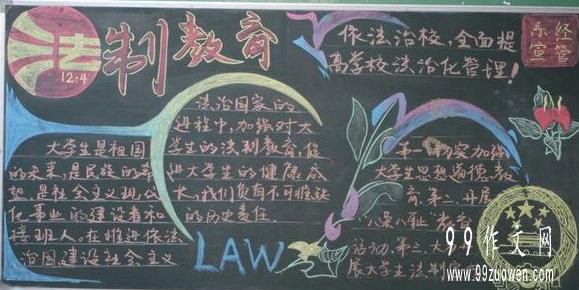 法制教育
12.4
依法治校,全面提
高学校法治化管理!
经管
宣
大学生是祖国
的未来,是民族的希
想,是社会主义现代
化事业的建设者和
接班人。在推进依法
治国建设社会主义
法治国家的
进程中,加强对大
学生的法制教育,促
进大学生的健康成
长,我们负有不可推缺
的历史责任。
LAW
第一
加强
大学生思想道德教
育,第二,开展
"八荣八耻"教育
活动,第三,大
展大学生法制
99作文网
www.99zuowen.com